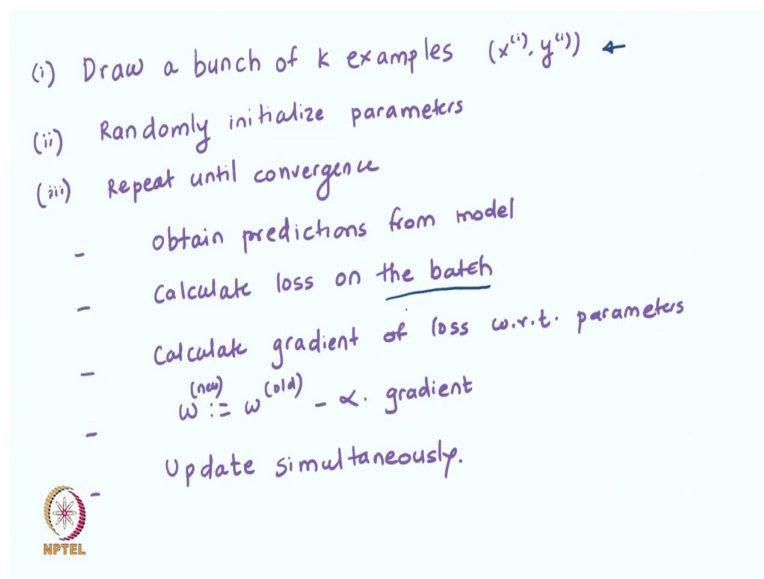 (i) Draw a bunch of k examples (x⁽ⁱ⁾, y⁽ⁱ⁾) ←
(ii) Randomly initialize parameters
(iii) Repeat until convergence
- obtain predictions from model
- Calculate loss on the batch
- Calculate gradient of loss w.r.t. parameters
- w⁽ⁿᵉʷ⁾ := w⁽ᵒˡᵈ⁾ - α. gradient
- Update simultaneously.
NPTEL